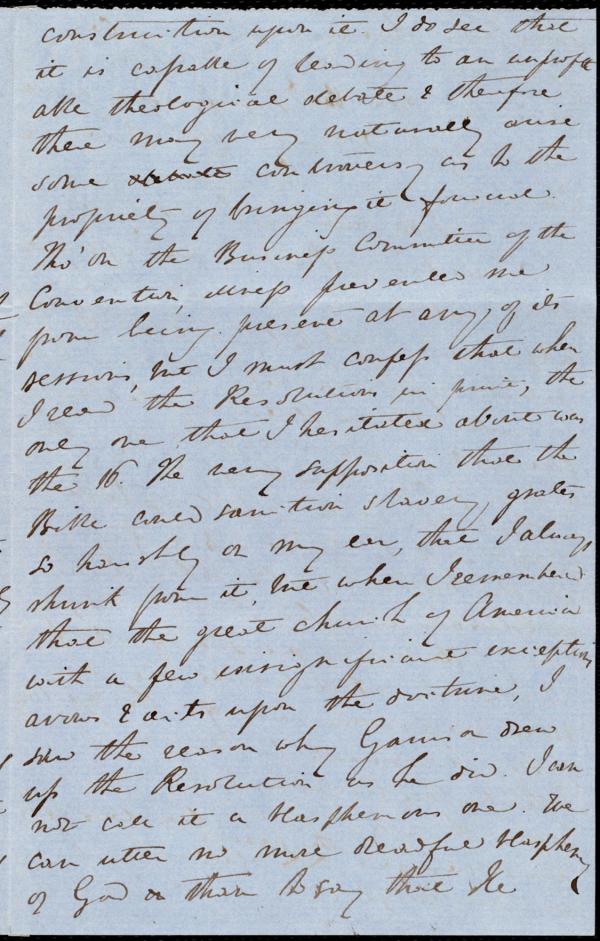 construction upon it. I do see that
it is capable of leading to an unprofit
able theological debate & therefore
there may very naturally arise
some debate controversy as to the
propriety of bringing it forward.
Tho' on the Business Committee of the
Convention, illness prevented me
from being present at any of its
sessions, but I must confess that when
I read the Resolutions in print, the
only one that I hesitated about was
the 16. The very supposition that the
Bible could sanction slavery, grates
so harshly on my ear, that I always
shrink from it, but when I remembered
that the great church of America
with a few insignificant exceptions
avows & acts upon the doctrine, I
saw the reason why Garrison drew
up the Resolution as he did. I can
not call it a blasphemous one. We
can utter no more dreadful blasphemy
of God than to say that He